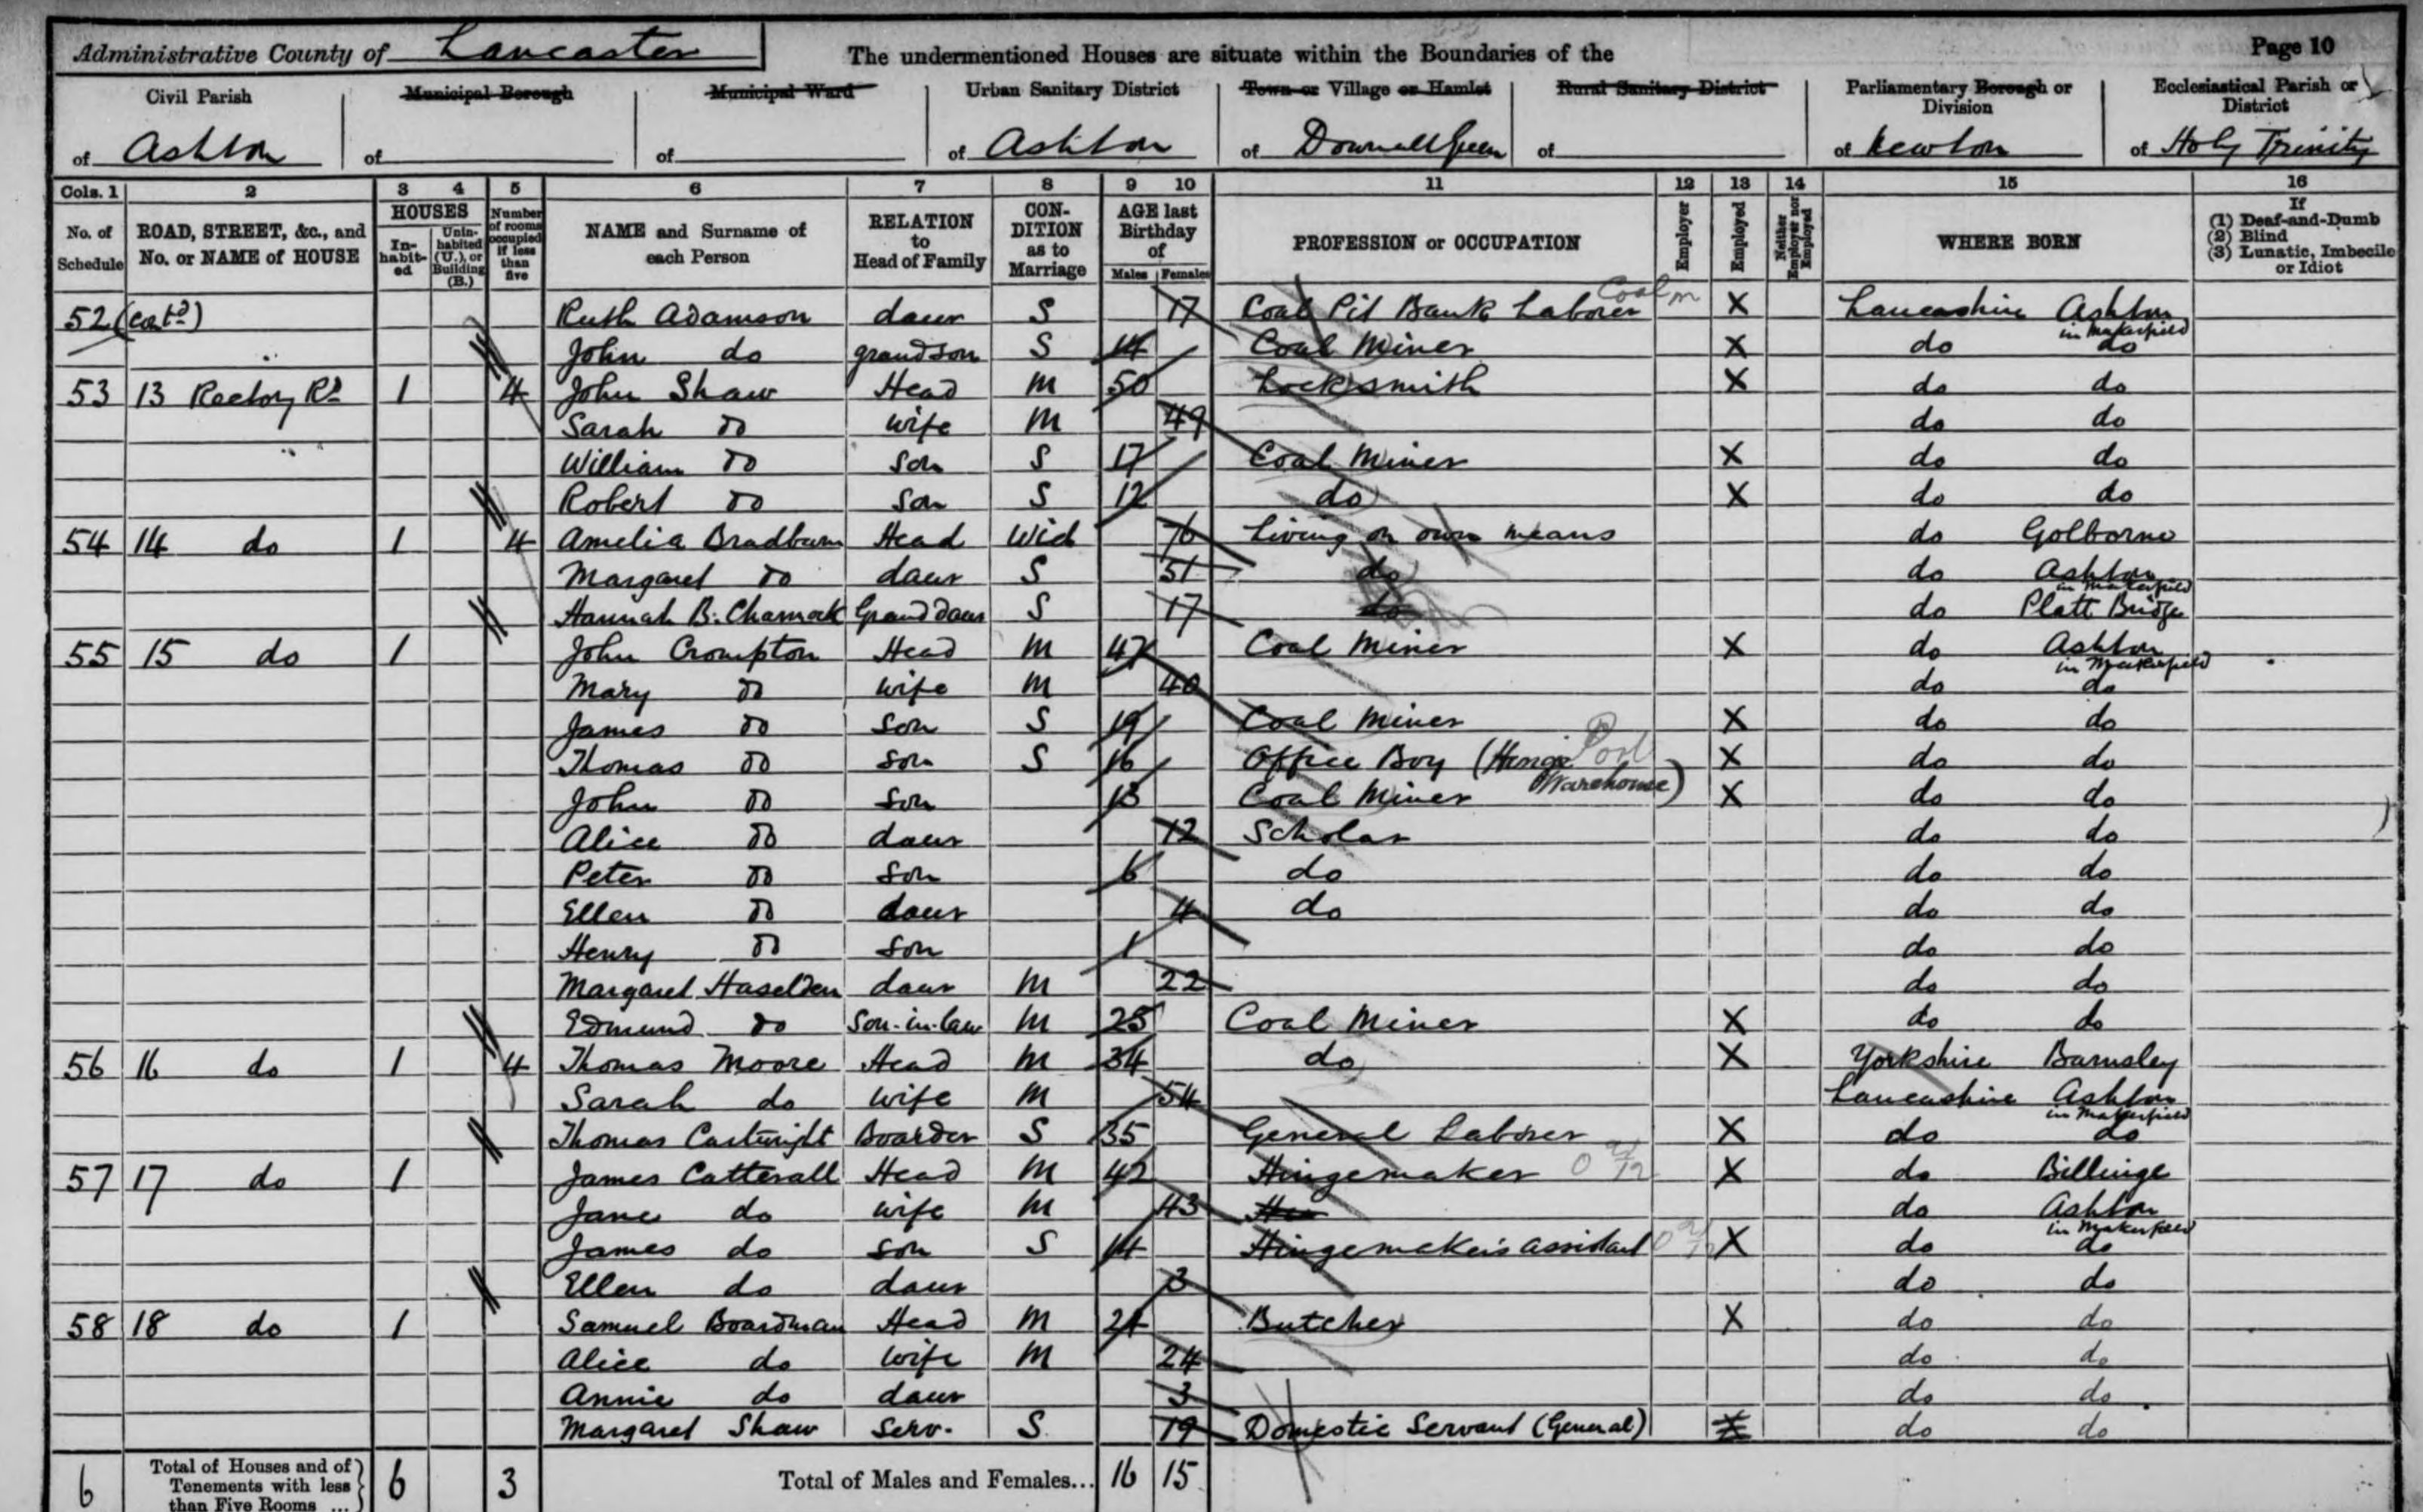 Administrative County of Lancaster The undermentioned Houses are situate within the Boundaries of the Page 10
Civil Parish Municipal Borough Municipal Ward Urban Sanitary District Town or Village or Hamlet Rural Sanitary District Parliamentary Borough or Division Ecclesiastical Parish or District
of Ashton of of of Ashton of Downall Green of of Newton of Holy Trinity
Cols. 1 2 3 4 5 6 7 8 9 10 11 12 13 14 15 16
No. of Schedule ROAD, STREET, &c., and No. or NAME of HOUSE HOUSES In-habit-ed Unin-habited (U.), or Building (B.) Number of rooms occupied if less than five NAME and Surname of each Person RELATION to Head of Family CON-DITION as to Marriage AGE last Birthday of Males Females PROFESSION or OCCUPATION Employer Employed Neither Employer nor Employed WHERE BORN If (1) Deaf-and-Dumb (2) Blind (3) Lunatic, Imbecile or Idiot
52 (contd) Ruth Adamson daur S 17 Coal Pit Bank Laborer Coal m X Lancashire Ashton in Makerfield
John do grandson S 14 Coal Miner X do do
53 13 Rectory Rd 1 4 John Shaw Head M 50 Locksmith X do do
Sarah do wife M 49 do do
William do Son S 17 Coal Miner X do do
Robert do Son S 12 do X do do
54 14 do 1 4 Amelia Bradburn Head Wid 76 Living on own means do Golborne
Margaret do daur S 51 do do Ashton in Makerfield
Hannah B. Charnock Grand daur S 17 do do Platt Bridge
55 15 do 1 John Crompton Head M 47 Coal Miner X do Ashton in Makerfield
Mary do wife M 40 do do
James do Son S 19 Coal Miner X do do
Thomas do Son S 16 Office Boy (Hinge Warehouse) X do do
John do Son 13 Coal Miner X do do
Alice do daur 12 Scholar do do
Peter do Son 6 do do do
Ellen do daur 4 do do do
Henry do son 1 do do
Margaret Haselden daur M 22 do do
Edmund do Son-in-law M 25 Coal Miner X do do
56 16 do 1 4 Thomas Moore Head M 34 do X Yorkshire Barnsley
Sarah do wife M 54 Lancashire Ashton in Makerfield
Thomas Cartwright Boarder S 35 General Laborer X do do
57 17 do 1 James Catterall Head M 42 Hingemaker X do Billinge
Jane do wife M 43 do Ashton in Makerfield
James do son S 14 Hingemaker's assistant X do do
Ellen do daur 3 do do
58 18 do 1 Samuel Boardman Head M 24 Butcher X do do
Alice do wife M 24 do do
Annie do daur 3 do do
Margaret Shaw Serv. S 19 Domestic Servant (General) X do do
6 Total of Houses and of Tenements with less than Five Rooms ... 6 3 Total of Males and Females... 16 15